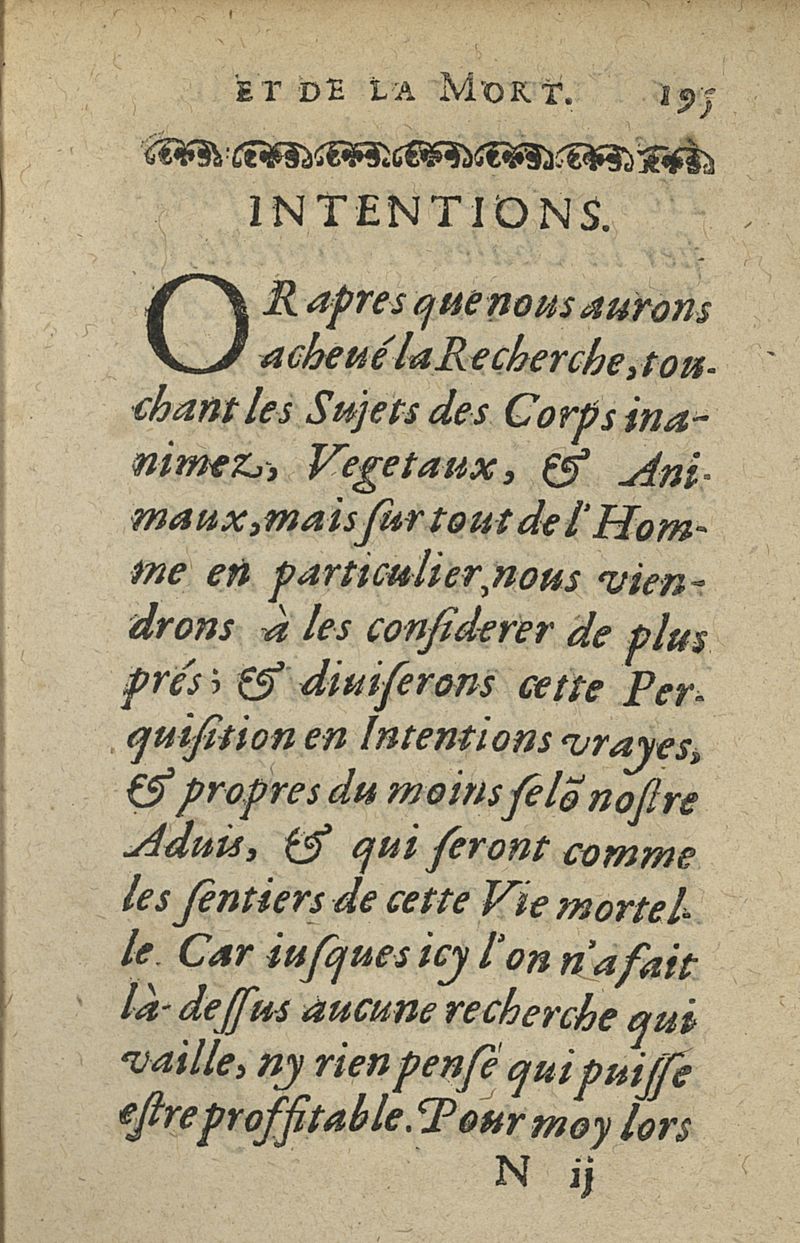 ET DE LA MORT. 195
INTENTIONS.
OR apres que nous aurons
acheué la Recherche, tou-
chant les Sujets des Corps ina-
nimez, Vegetaux, & Ani-
maux, mais ſur tout de l'Hom-
me en particulier, nous vien-
drons à les conſiderer de plus
prés; & diuiſerons cette Per-
quiſition en Intentions vrayes,
& propres du moins ſelõ noſtre
Aduis, & qui ſeront comme
les ſentiers de cette Vie mortel-
le. Car iuſques icy l'on n'a fait
là-deſſus aucune recherche qui
vaille, ny rien penſé qui puiſſe
eſtre proffitable. Pour moy lors
N ij